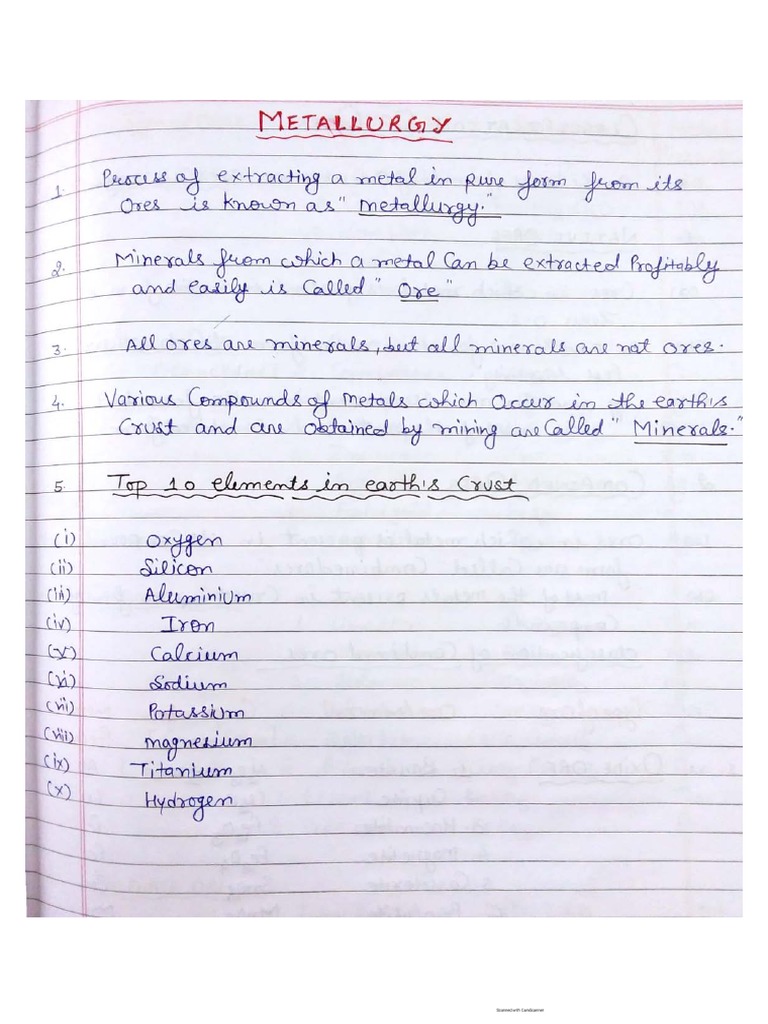 METALLURGY
1. Process of extracting a metal in pure form from its
Ores is known as "Metallurgy."
2. Minerals from which a metal can be extracted Profitably
and easily is called "Ore"
3. All ores are minerals, but all minerals are not ores.
4. Various Compounds of metals which occur in the earth's
Crust and are obtained by mining are called "Minerals."
5. Top 10 elements in earth's Crust
(i) Oxygen
(ii) Silicon
(iii) Aluminium
(iv) Iron
(v) Calcium
(vi) Sodium
(vii) Potassium
(viii) magnesium
(ix) Titanium
(x) Hydrogen
Scanned with CamScanner